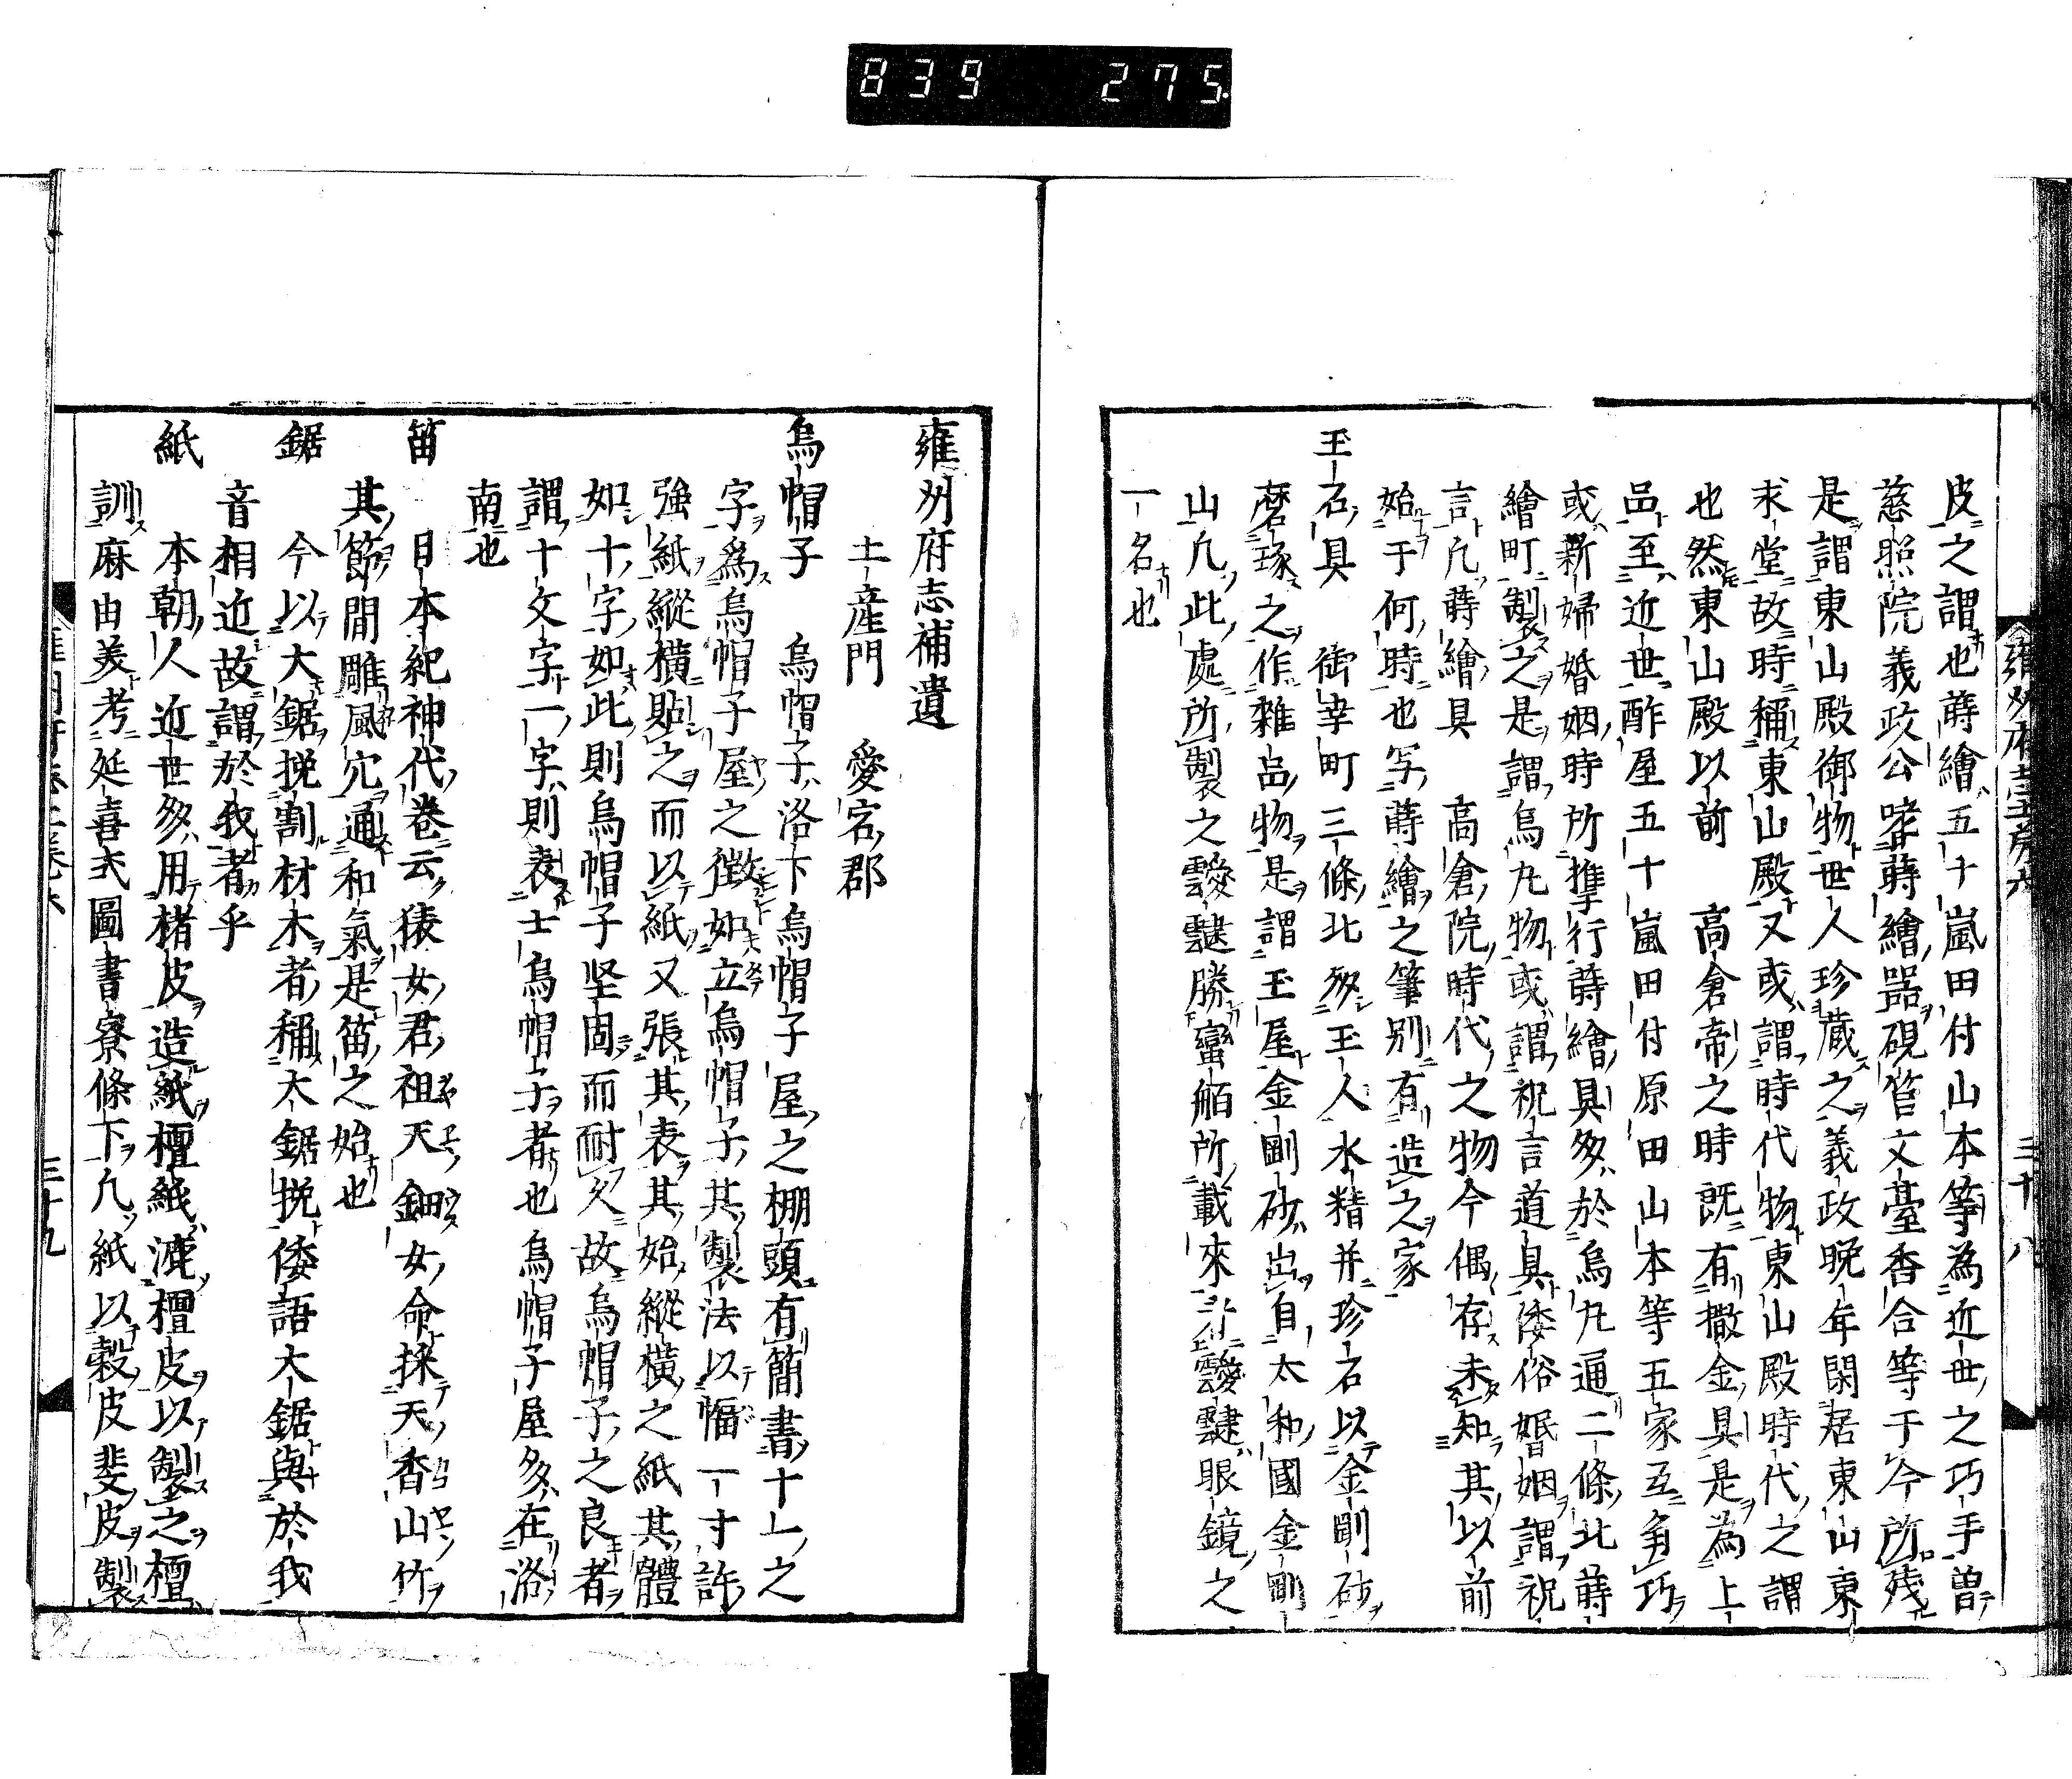 839 275
雍州府志 卷六
三十八
皮之謂也蒔繪五十嵐田付山本等為近世之巧手曽
慈照院義政公嗜蒔繪器硯筥文臺香合等于今所残
是謂東山殿御物世人珍蔵之義政晩年閑居東山東
求堂故時稱東山殿又或謂時代物東山殿時代之謂
也然東山殿以前 高倉帝之時既有撒金具是為上
品至近世酢屋五十嵐田付原田山本等五家互争巧
或新婦婚姻時所携行蒔繪具多於烏丸通二條北蒔
繪町製之是謂烏丸物或謂祝言道具倭俗婚姻謂祝
言凡蒔繪具 高倉院時代之物今偶存未知其以前
始于何時也写蒔繪之筆別有造之家
玉石具 御幸町三條北多玉人水精并珍石以金剛砂
磨琢之作雑品物是謂玉屋金剛砂出自太和國金剛
山凡此處所製之靉靆勝蠻舶所載來者靉靆眼鏡之
一名也
雍州府志補遺
土産門 愛宕郡
烏帽子 烏帽子洛下烏帽子屋之棚頭有簡書十一之
字為烏帽子屋之徴如立烏帽子其製法以幅一寸許
強紙縱橫貼之而以紙又張其表其始縱橫之紙其體
如十字如此則烏帽子坚固而耐久故烏帽子之良者
謂十文字一字則表士烏帽子者也烏帽子屋多在洛
南也
笛 日本紀神代卷云猿女君祖天鈿女命採天香山竹
其節間雕風穴通和氣是笛之始也
鋸 今以大鋸挽割材木者稱大鋸挽倭語大鋸與於我
音相近故謂於我者乎
紙 本朝人近世多用楮皮造紙檀紙漉檀皮以製之檀
訓麻由美考延喜式圖書寮條下凡紙以榖皮斐皮製
三十九